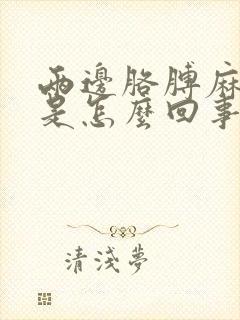 兩邊胳膊麻
是怎麼回事
清淺夢